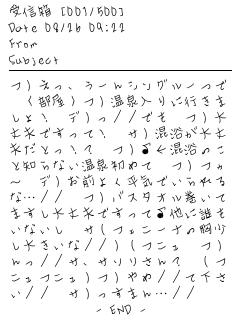 受信箱 [001/500]
Date 08/26 09:22
From
Subject
フ)えっ、うーんシングル一つで
(部屋) フ)温泉入りに行きま
しょ! デ)っ//でも フ)大
丈夫ですって! サ)混浴が大丈
夫だとっ!? フ)♪←混浴のこ
と知らない温泉初めて フ)フっ
～ デ)お前よく平気でいられる
な…// フ)バスタオル巻いて
ますし大丈夫ですって♪他に誰も
いないし サ(フェニーナの胸少
し大きいな//)(フニュ フ)
んっ//サ、サリりさん? (フ
ニュフニュ)フ)やめ//て下さ
い// サ)っすまん…//
- END -